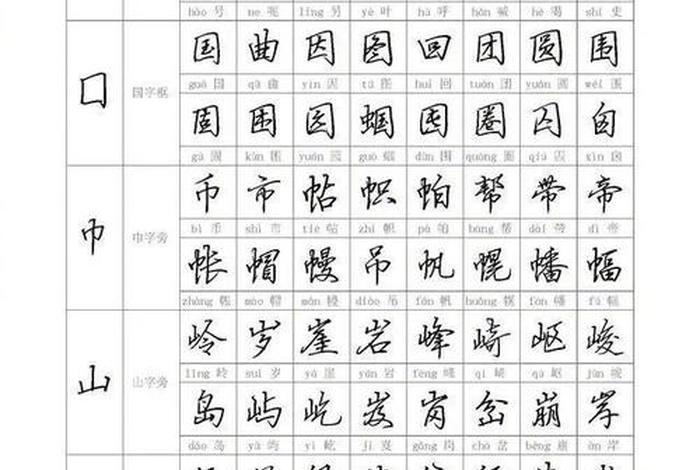 hào 号 ne 呢 lìng 另 yè 叶 hū 呼 hǎn 喊 hē 喝 shǐ 史
国 曲 因 图 回 团 圆 围
guó 国 qū 曲 yīn 因 tú 图 huí 回 tuán 团 yuán 圆 wéi 围
囗 国字框
固 困 园 蝈 囤 圈 囚 囟
gù 固 kùn 困 yuán 园 guō 蝈 dùn 囤 quāng 圈 qiú 囚 xìn 囟
币 市 帖 帜 帕 帮 带 帝
bì 币 shì 市 tiē 帖 zhì 帜 pà 帕 bāng 帮 dài 带 dì 帝
巾 巾字旁
帐 帽 幔 吊 帆 幌 幡 幅
zhàng 帐 mào 帽 màn 幔 diào 吊 fān 帆 huǎng 幌 fān 幡 fú 幅
岭 岁 崖 岩 峰 崎 岖 峻
lǐng 岭 suì 岁 yá 崖 yán 岩 fēng 峰 qí 崎 qū 岖 jùn 峻
山 山字旁
岛 屿 屹 岌 岗 岔 崩 岸
dǎo 岛 yǔ 屿 yì 屹 jí 岌 gǎng 岗 chà 岔 bēng 崩 àn 岸